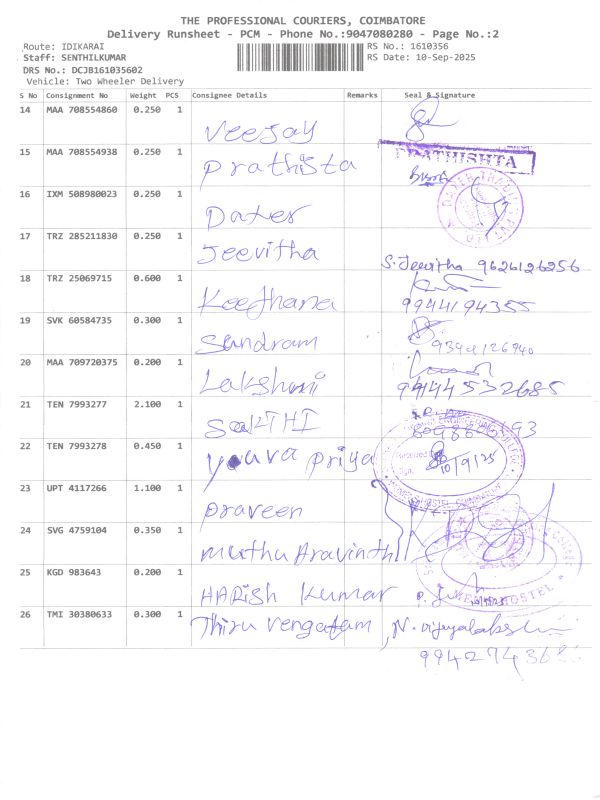 THE PROFESSIONAL COURIERS, COIMBATORE
Delivery Runsheet - PCM - Phone No.:9047080280 - Page No.:2
Route: IDIKARAI RS No.: 1610356
Staff: SENTHILKUMAR RS Date: 10-Sep-2025
DRS No.: DCJB161035602
Vehicle: Two Wheeler Delivery
S No Consignment No Weight PCS Consignee Details Remarks Seal & Signature
14 MAA 708554860 0.250 1 Veejay
15 MAA 708554938 0.250 1 Prathista PRATHISHTA
16 IXM 508980023 0.250 1 Dater
17 TRZ 285211830 0.250 1 Jeevitha S. Jeevitha 9626126256
18 TRZ 25069715 0.600 1 Keerthana 9944194355
19 SVK 60584735 0.300 1 Sundram
20 MAA 709720375 0.200 1 Lakshmi
21 TEN 7993277 2.100 1 SakTHI
22 TEN 7993278 0.450 1 Yuva Priya 10/9/25
23 UPT 4117266 1.100 1 Praveen
24 SVG 4759104 0.350 1 Muthu Aravinth
25 KGD 983643 0.200 1 HARish Kumar HOSTEL
26 TMI 30380633 0.300 1 Thiru Vengatam N. Vijayalakshmi